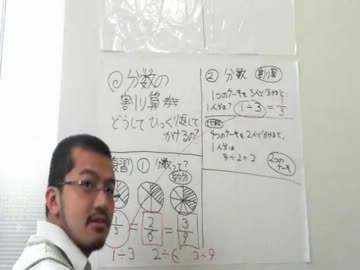 ◎分数の
割り算
どうしてひっくり返して
かけるの?
② 分数 割り算
1つのケーキを3人で分けると、
1人分は? 1÷3=1/3
4つのケーキを2人で分けると、
1人分は
4÷2=2
2つの
ケーキ
復習 ① 分数って?
1/3 = 2/6 = 3/9
1÷3 2÷6 3÷9